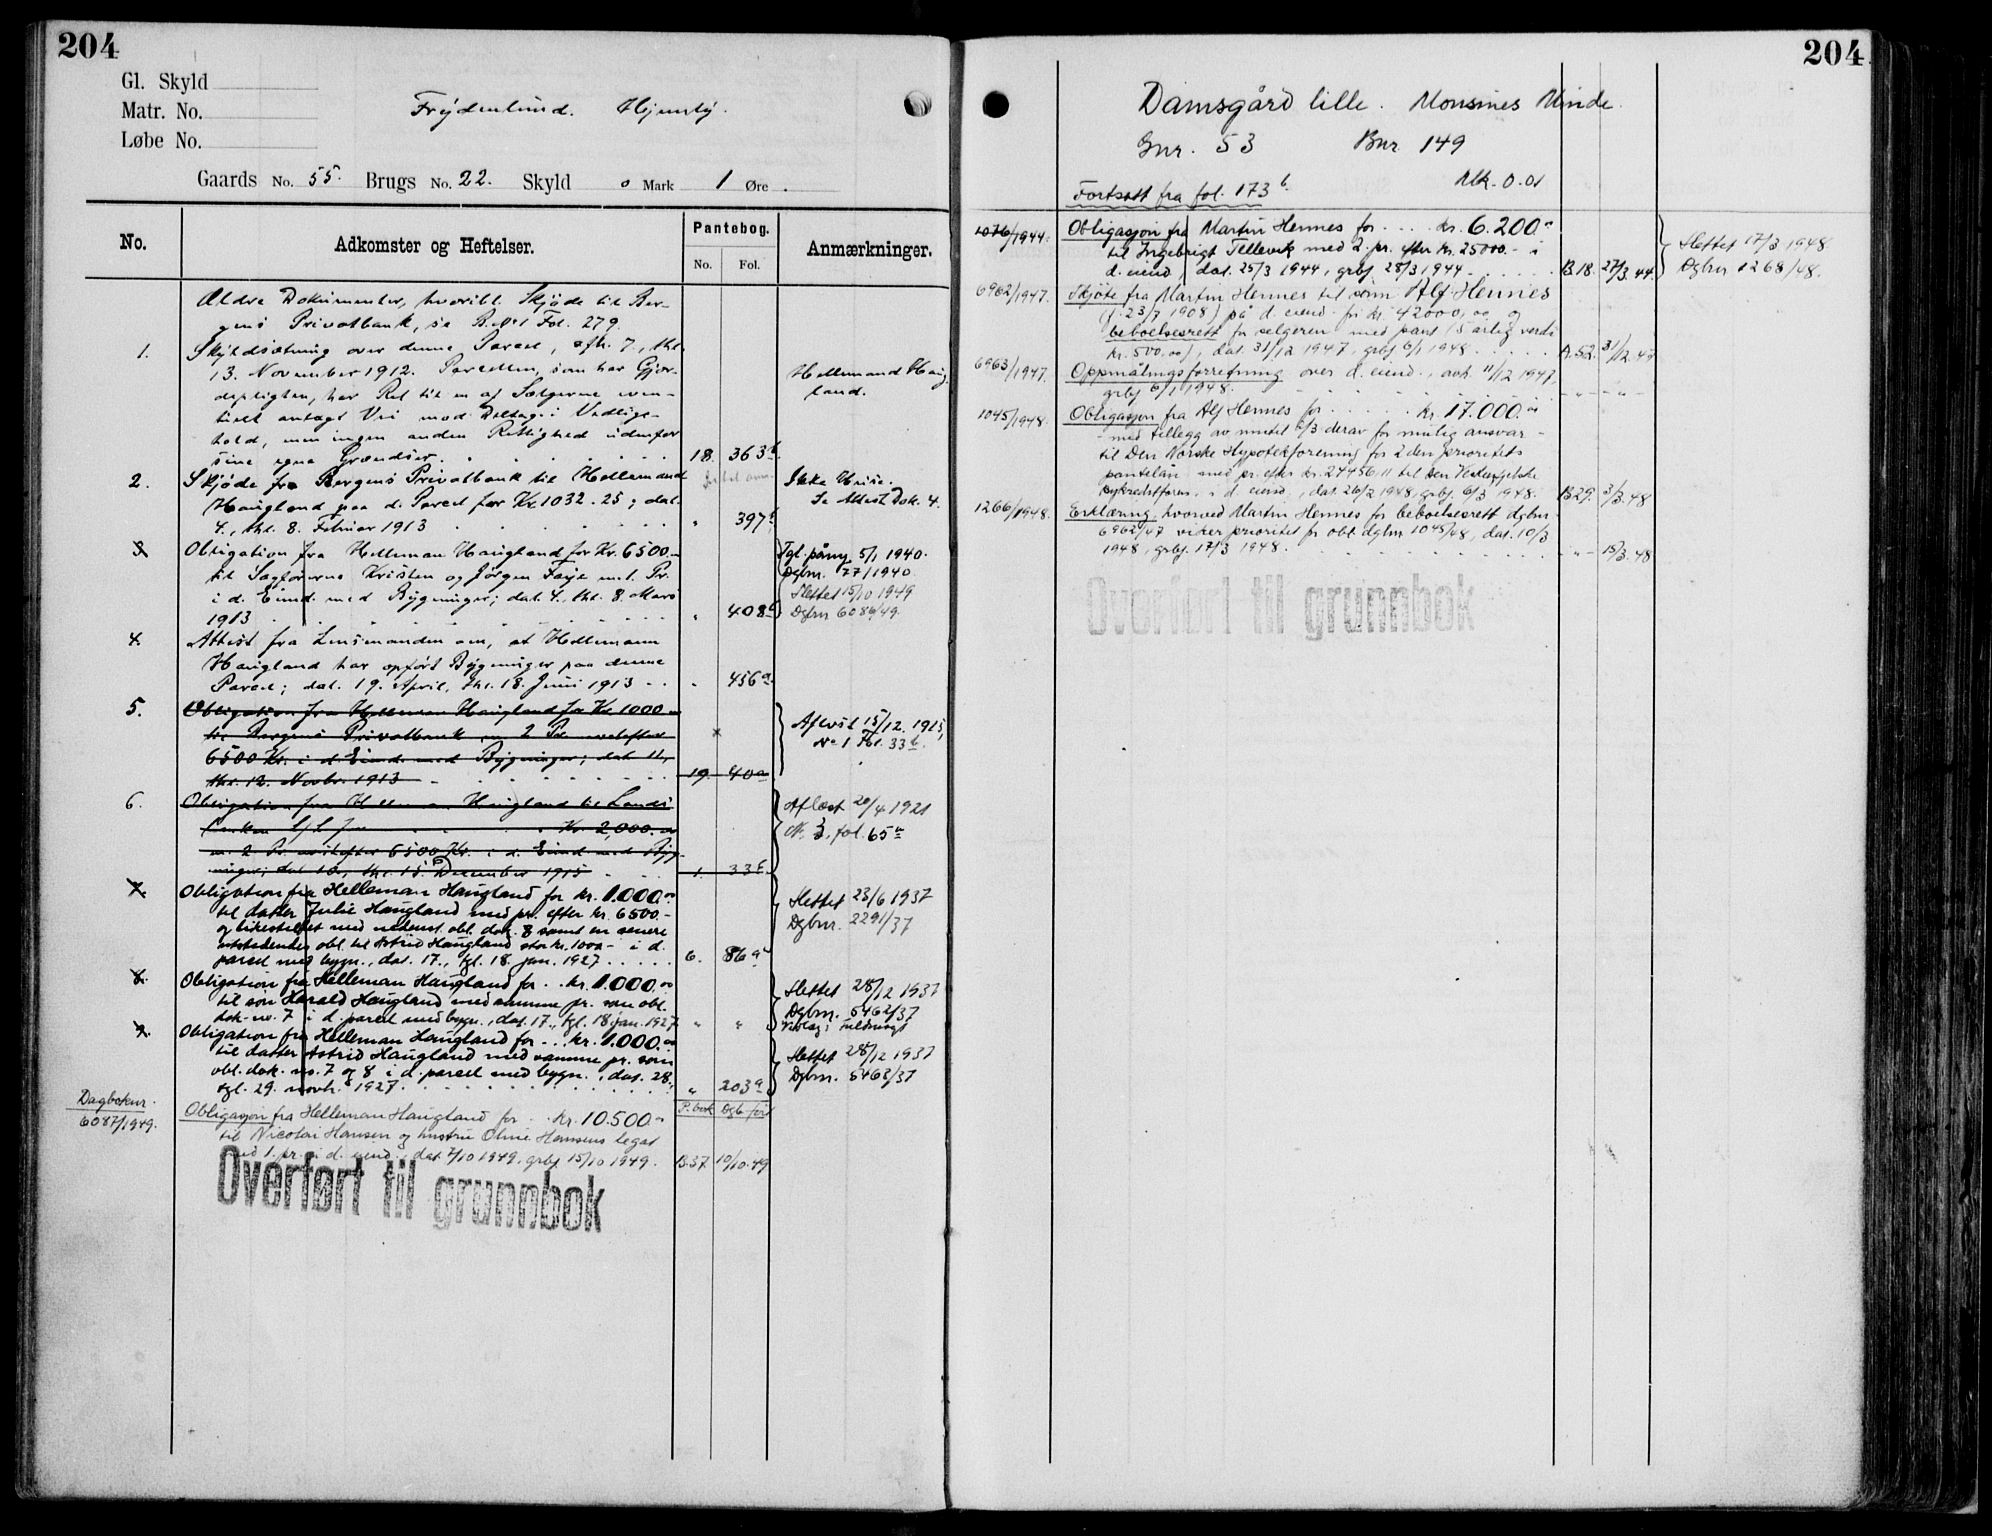 204
Gl. Skyld
Matr. No.
Løbe No.
Frydenlund. Hjemly.
Gaards No. 55. Brugs No. 22. Skyld 0 Mark 1 Øre.
No. Adkomster og Heftelser. Pantebog. Anmærkninger.
No. Fol.
Ældre Dokumenter, hvoribl. Skjøde til Ber-
gens Privatbank, se B. No 1 Fol. 279.
1. Skyldsætning over denne Parcel, afh. 7., thl.
13. November 1912. Parcellen, som har Gjær-
depligten, har Ret til en af Sælgerne even-
tuelt anlagt Vei mod Deltage i Vedlige-
hold, men ingen anden Rettighed udenfor
sine egne Grændser. 18. 363 b.
Hellemand Haug-
land.
2. Skjøde fra Bergens Privatbank til Hellemand
Haugland paa d. Parcel for Kr. 1032.25; dat.
4., thl. 8. Februar 1913 " 397 b
Ikke Huse.
Se Attest Dok. 4.
3. Obligation fra Helleman Haugland for Kr. 6500.-
til Sagførerne Kristen og Jørgen Faye m. 1. Pr.
i d. Eiend. med Bygninger; dat. 4., thl. 8. Marts
1913 " 408 b
Tgl. påny 5/1 1940.
Dgbnr. 77/1940.
Slettet 15/10 1949
Dgbnr 6086/49.
4. Attest fra Lensmanden om, at Hellemann
Haugland har opført Bygninger paa denne
Parcel; dat. 19. April, thl. 18. Juni 1913 - . - 456 a.
5. Obligation fra Helleman Haugland for Kr. 1000.-
til Bergens Privatbank m 2 Pr. næstefter
6500 Kr. i d. Eiend. med Bygninger; dat. 11.,
thl. 12. Novbr. 1913 19. 40 a
Aflæst 15/12. 1915,
No 1 Fol. 33 b.
6. Obligation fra Helleman Haugland til Lands
Kr. 2,000.-
m. 2 Pr. næstefter 6500 Kr. i d. Eiend. med Byg-
ninger; dat 10., thl. 15. December 1915 1. 33 b.
Aflæst 20/4 1921
N. 3, fol. 65 a
7. Obligation fra Helleman Haugland for kr. 1.000.oo
til datter Julie Haugland med pr. efter kr. 6500.-
og likestillet med nedenst. obl. dok. 8 samt en senere
utstedendes obl. til Astrid Haugland stor kr. 1000.- i d.
parcel med bygn., dat. 17., tgl. 18. jan. 1927 . . . . . 6. 86 a
Slettet 23/6 1937
Dgbnr. 2291/37
8. Obligation fra Helleman Haugland for . . kr. 1.000.oo
til søn Harald Haugland med samme pr. som obl.
dok. no. 7 i d. parcel med bygn., dat. 17., tgl. 18. jan. 1927 " "
Slettet 28/12 1937
Dgbnr. 5462/37
9. Obligation fra Helleman Haugland for . . . kr. 1.000.oo
til datter Astrid Haugland med samme pr. som
obl. dok. no. 7 og 8 i d. parcel med bygn., dat. 28.,
tgl. 29. novb. 1927. " 203 a
Slettet 28/12 1937
Dgbnr. 5463/37
Dagboknr.
6087/1949.
P. bok Dgb. ført
Obligasjon fra Helleman Haugland for . . kr. 10.500.-
til Nicolai Hansen og hustru Oline Hansens legat
med 1. pr. i d. eiend., dat 7/10 1949, grbf. 15/10 1949. B.37 10/10.49
Overført til grunnbok
204
Damsgård lille. Monsines Minde.
Gnr. 53 Bnr. 149
Fortsatt fra fol. 173 b. Mk. 0.01
1076/1944. Obligasjon fra Martin Hennes for . . . kr. 6.200.-
til Ingebrigt Tellevik med 2. pr. efter kr. 25000.- i
d. eiend. dat. 25/3 1944, grbf. 28/3 1944. B.18. 27/3.44.
Slettet 17/3 1948
Dgbnr 1268/48.
6962/1947. Skjøte fra Martin Hennes til sønn Alf Hennes
(f. 23/7 1908) på d. eiend. for kr. 42000,oo og
beboelsesrett for selgeren med pant (5 årlig verdi
kr. 500,oo), dat. 31/12 1947, grbf. 6/1 1948. A.52. 31/12.47
6963/1947. Oppmålingsforretning over d. eiend., avh. 11/12 1947,
grbf. 6/1 1948. - " - - " -
1045/1948. Obligasjon fra Alf Hennes for . . . . . kr. 17.000.oo
- med tillegg av inntil 1/3 derav for mulig ansvar -
til Den Norske Hypotekforening for 2den prioritets
pantelån med pr. efter kr. 27456,11 til Den Vestenfjelske
bykredittforen. i d. eiend., dat. 26/2 1948, grbf. 6/3 1948. B.29. 3/3.48
1266/1948. Erklæring, hvorved Martin Hennes for beboelsesrett dgbnr.
6962/47 viker prioritet for obl. dgbnr 1045/48, dat. 10/3
1948, grbf. 17/3 1948. - " - 15/3.48
Overført til grunnbok